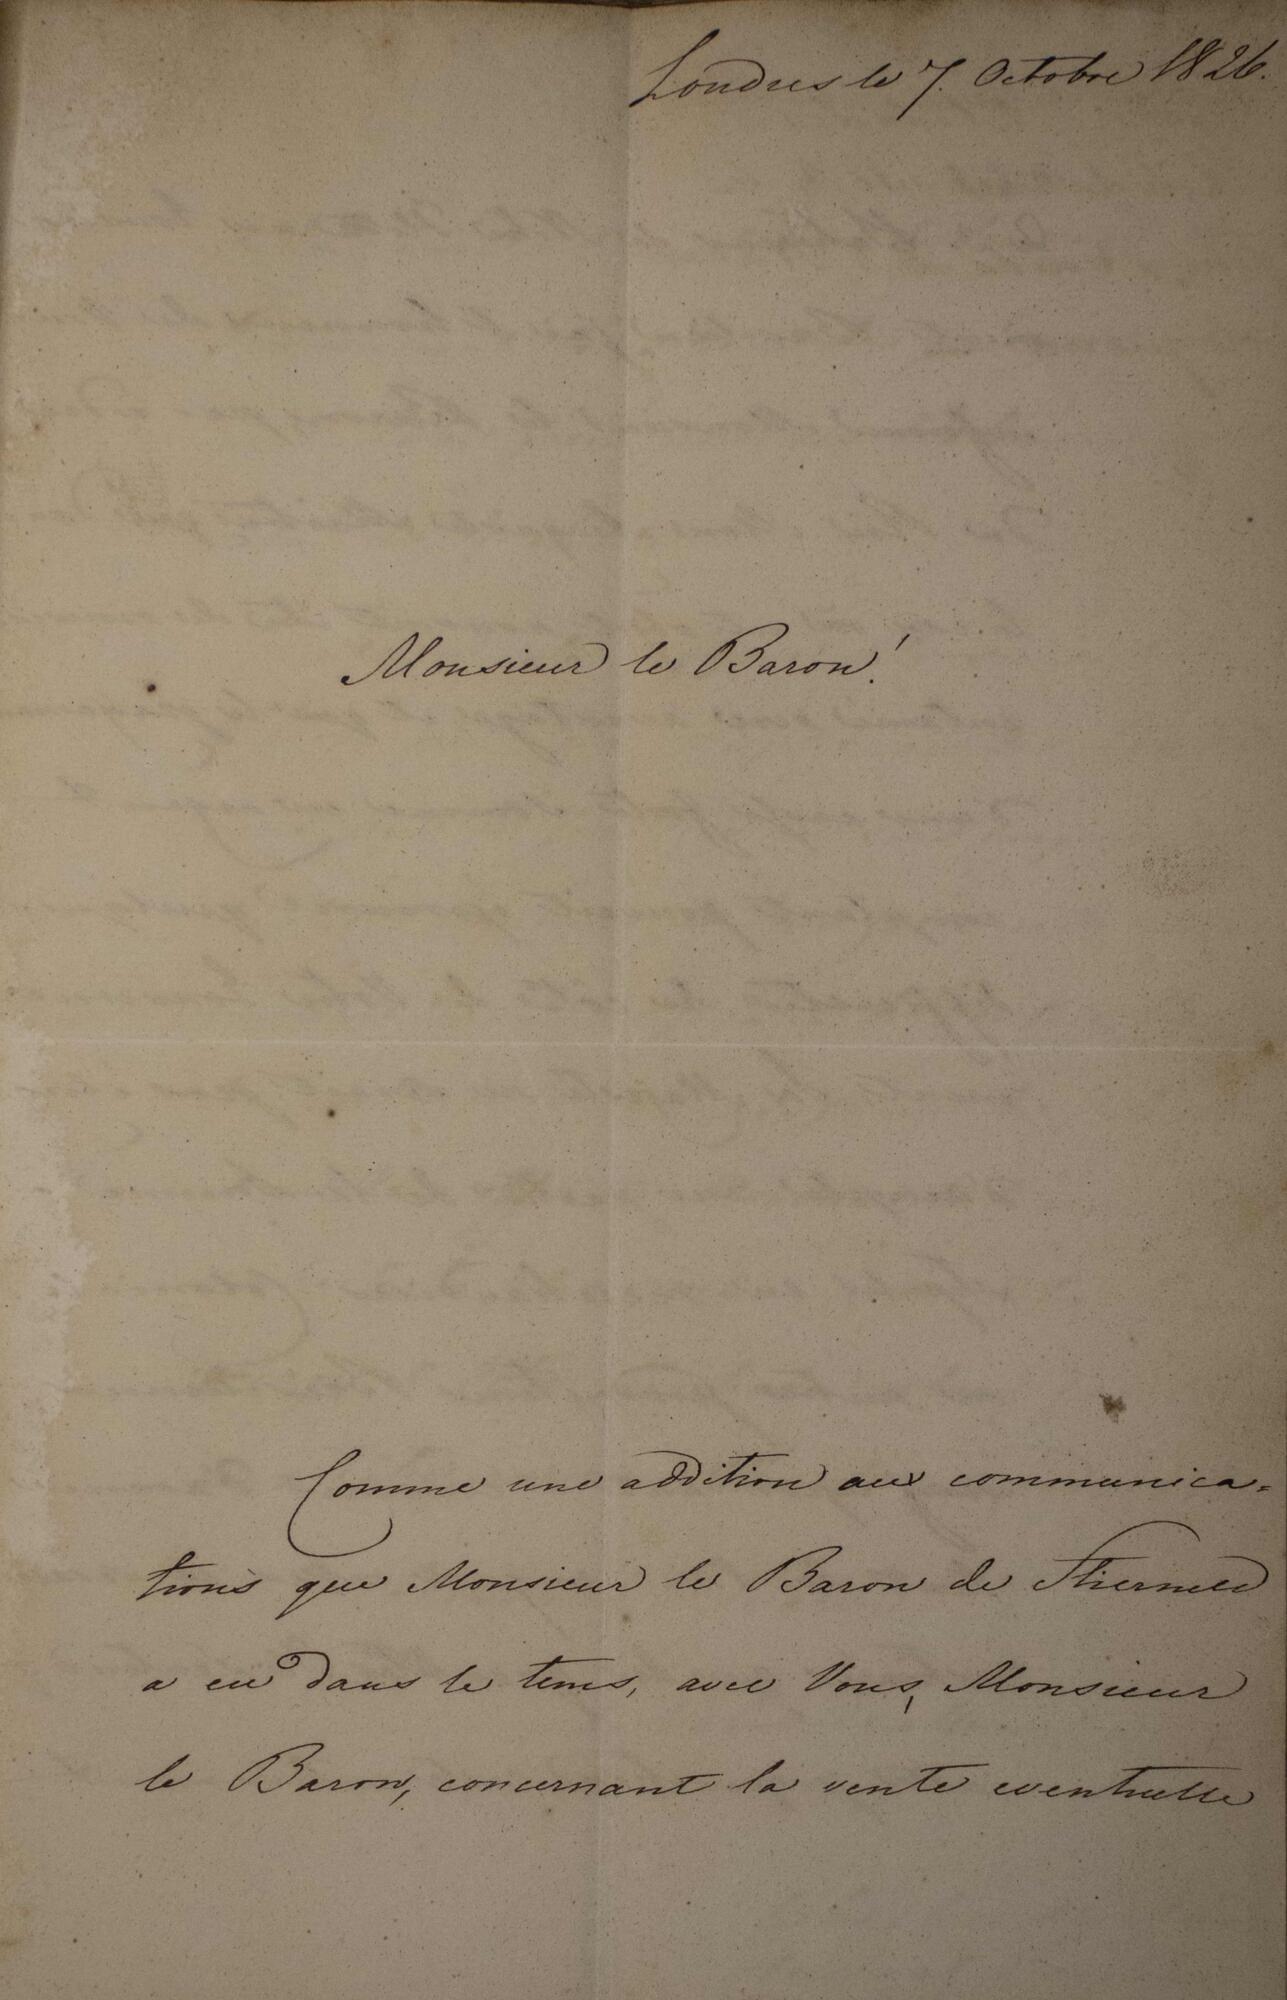 Londres le 7. Octobre 1826.
Monsieur le Baron!
Comme une addition aux communica=
tions que Monsieur le Baron de Stierneld
a eu dans le tems, avec Vous, Monsieur
le Baron, concernant la vente eventuelle